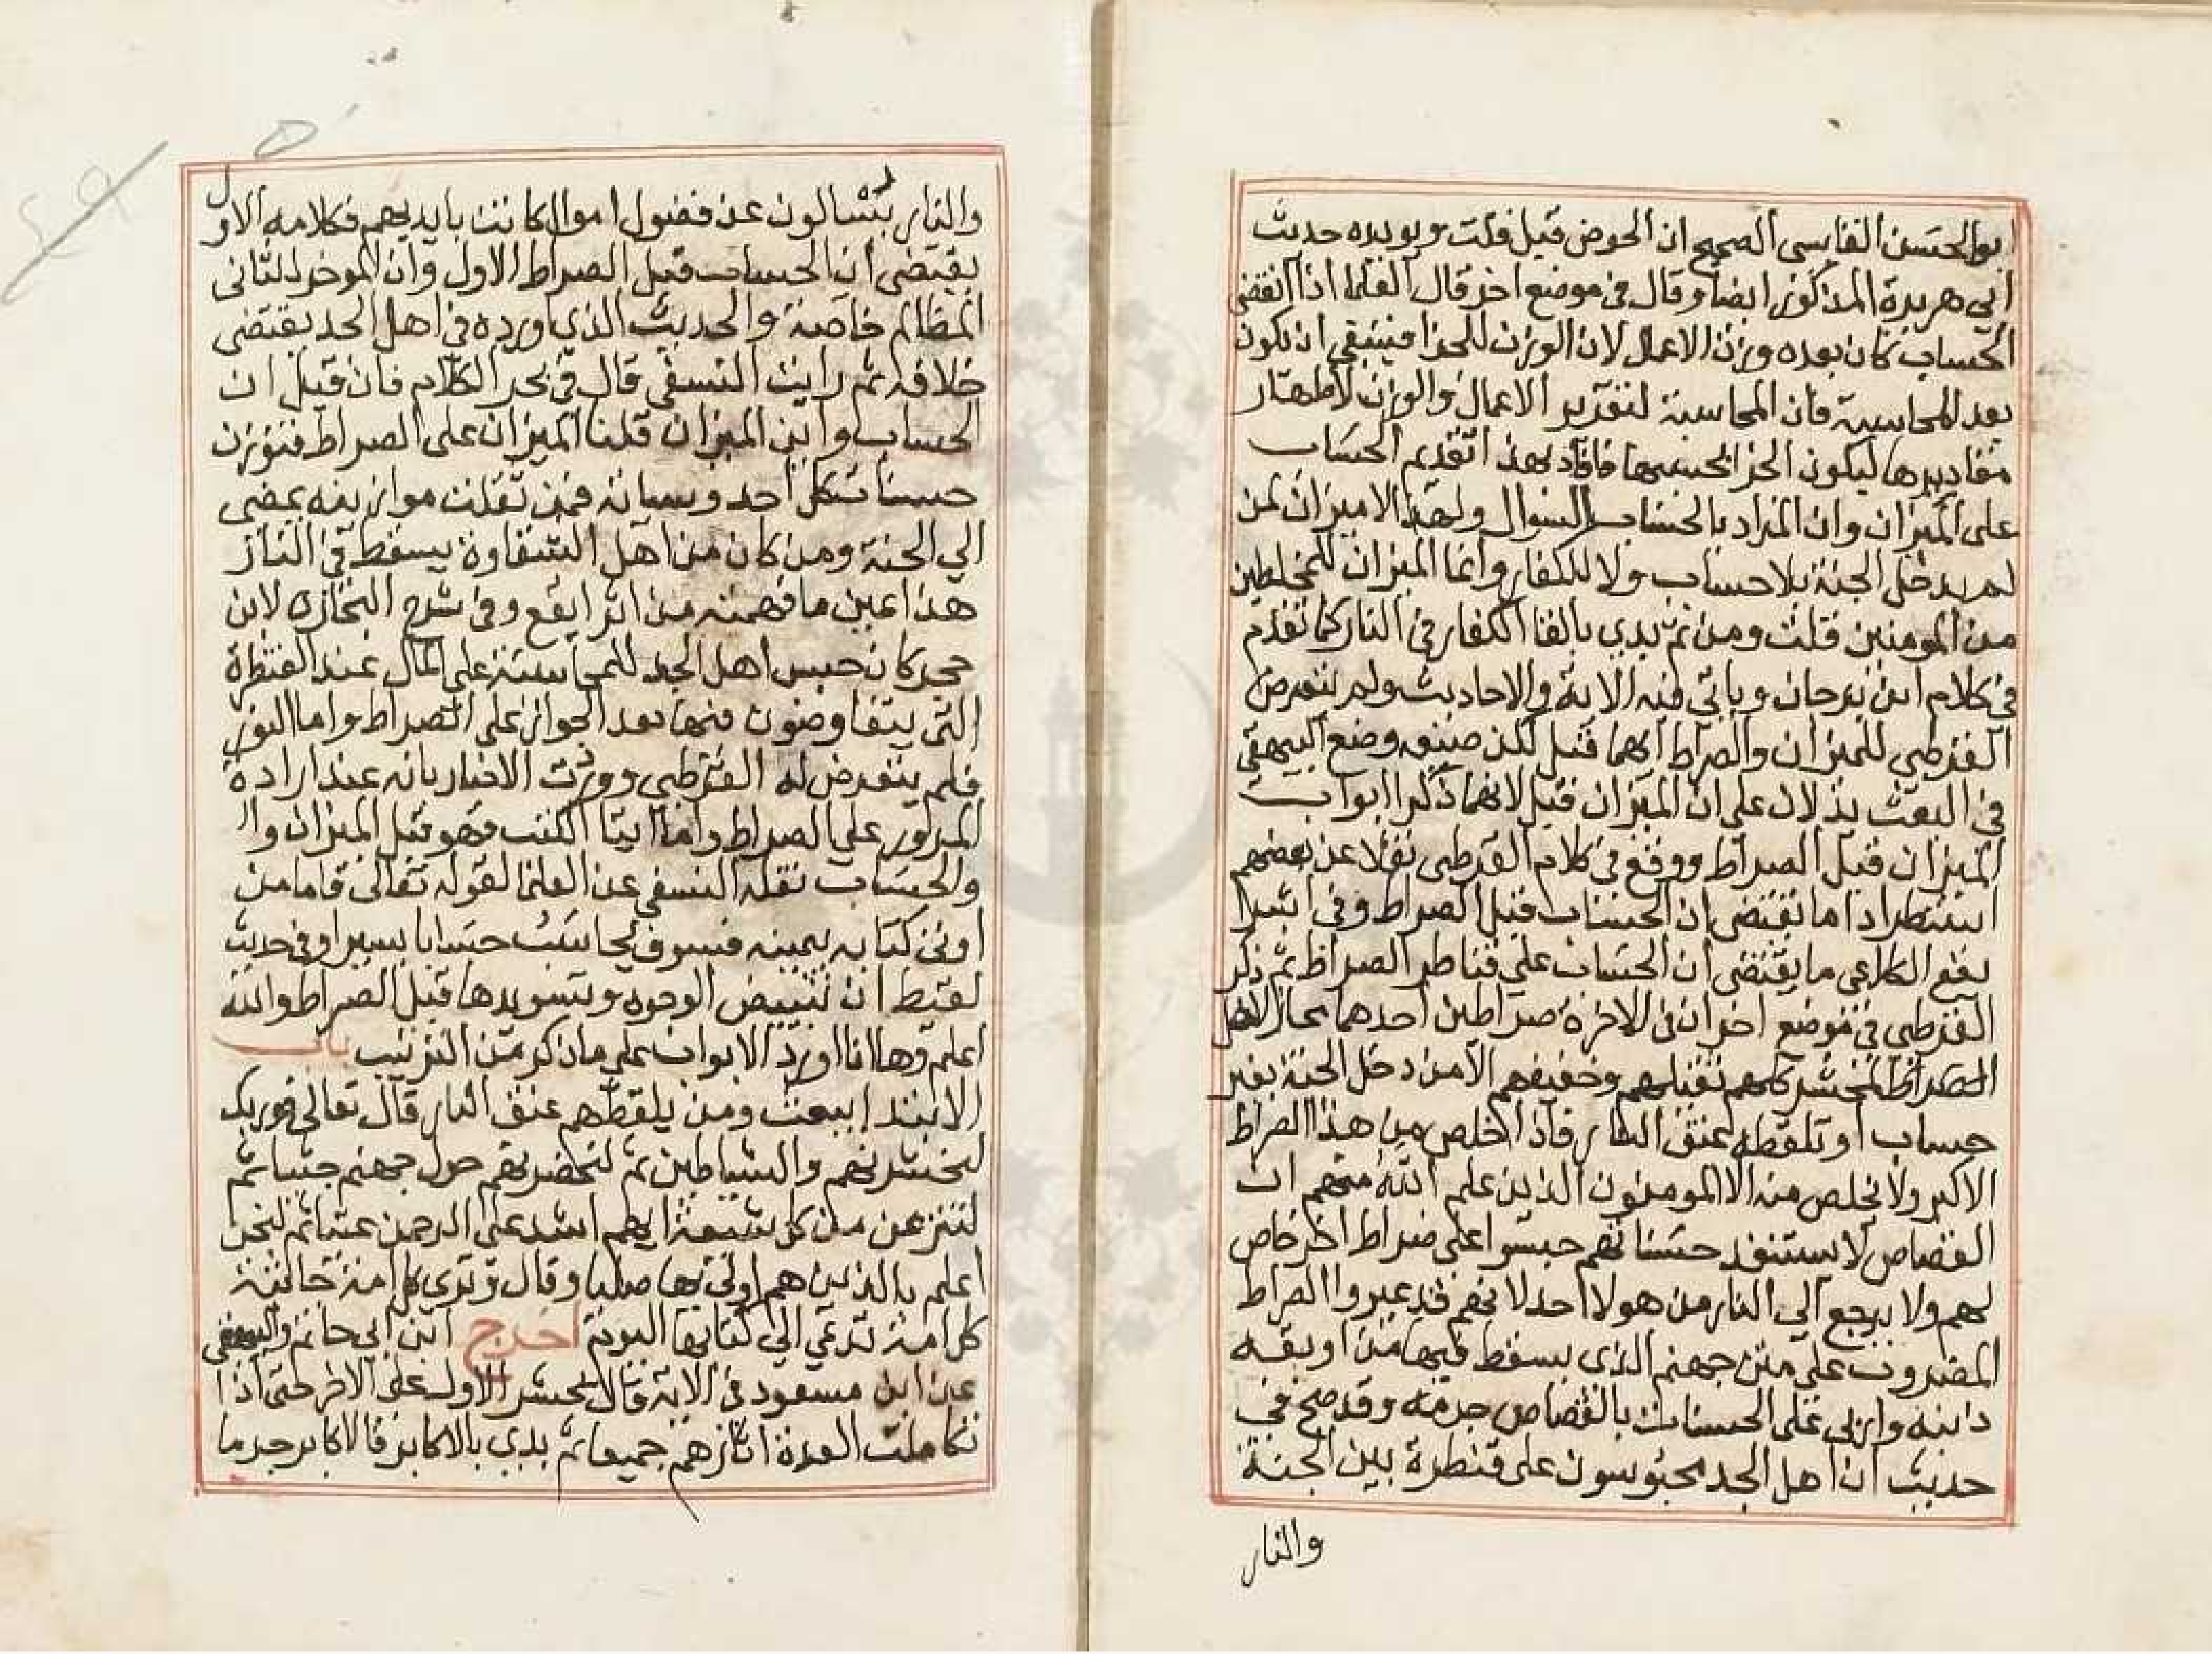 ابو الحسن القابسي الصحيح ان الحوض قبل قلت ويويده حديث
ابي هريرة المذكور ايضا وقال في موضع اخر قال العلما اذا انقضى
الحساب كان بعده وزن الاعمال لان الوزن للجزا فينبغي ان يكون
بعد المحاسبة فان المحاسبة لتقرير الاعمال والوزن لاظهار
مقاديرها ليكون الجزا بحسبها فافاد بهذا تقديم الحساب
على الميزان وان المراد بالحساب السوال ولهذا لا ميزان لمن
لم يدخل الجنة بلا حساب ولا للكفار وانما الميزان للمخلطين
من المومنين قلت ومن ثم بدي بالقا الكفار في النار كما تقدم
في كلام ابن برجان وياتي فيه الاية والاحاديث ولم يتعرض
القرطبي للميزان والصراط ايهما قبل لكن صنيعه وضع البيهقي
في البعث يدلان على ان الميزان قبل لانهما ذكرا ابواب
الميزان قبل الصراط ووقع في كلام القرطبي نقلا عن بعضهم
استطرادا ما يقتضي ان الحساب قبل الصراط وفي اثر
يفع الكلاعي ما يقتضي ان الحساب على قناطر الصراط ثم ذكر
القرطبي في موضع اخر ان في الاخرة صراطين احدهما مجاز لاهل
المحشر كلهم ثقيلهم وخفيفهم الا من دخل الجنة بغير
حساب او تلقطه عنق النار فاذا خلص من هذا الصراط
الاكبر ولا يخلص منه الا المومنون الذين علم الله منهم ان
القصاص لا يستنفد حسناتهم حبسوا على صراط اخر خاص
لهم ولا يرجع الي النار من هولا احد لانهم قد عبروا الصراط
المضروب على متن جهنم الذي يسقط فيها من اوبقه
ذنبه واربى على الحسنات بالقصاص جرمه وقد صح في
حديث ان اهل الجد محبوسون على قنطرة بين الجنة
والنار
والنار يسالون عن فضول اموال كانت بايديهم فكلامه الاول
يقتضي ان الحساب قبل الصراط الاول وان الموخر للثاني
المظالم خاصة والحديث الذي اورده في اهل الجد يقتضي
خلافه ثم رايت النسفي قال في بحر الكلام فان قيل ان
الحساب واين الميزان قلنا الميزان على الصراط فتوزن
حسنات كل احد وسياته فمن ثقلت موازينه يمضي
الي الجنة ومن كان من اهل الشقاوة يسقط في النار
هذا عين ما فهمته من اثر ايفع وفي شرح البخاري لابن
حجر كان حبس اهل الجد للمحاسبة على المال عند القنطرة
التي يتقاوضون فيها بعد الجواز على الصراط واما النور
فلم يتعرض له القرطبي ووردت الاخبار بانه عند ارادة
المرور على الصراط واما ايتا الكتب فهو قبل الميزان وا
والحساب نقله النسفي عن العلما لقوله تعالى فاما من
اوتي كتابه بيمينه فسوف يحاسب حسابا يسيرا وفي حديث
لقيط ان تبييض الوجوه وتسويدها قبل الصراط والله
اعلم وها انا اورد الابواب على ما ذكر من الترتيب باب
الابتدا ببعث ومن يلقطهم عنق النار قال تعالى فوربك
لنحشرنهم والشياطين ثم لنحضرنهم حول جهنم جثيا ثم
لننزعن من كل شيعة ايهم اشد على الرحمن عتيا ثم لنحن
اعلم بالذين هم اولى بها صليا وقال وترى كل امة جاثية
كل امة تدعي الي كتابها اليوم اخرج ابن ابي حاتم والبيهقي
عن ابن مسعود في الاية قال يحشر الاول على الاخر حتى اذا
تكاملت العدة اثارهم جميعا ثم بدي بالاكابر فالاكابر جرما